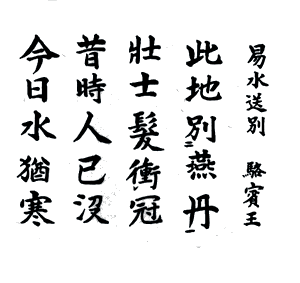 易水送別 駱賓王
此地別燕丹
壯士髮衝冠
昔時人已沒
今日水猶寒